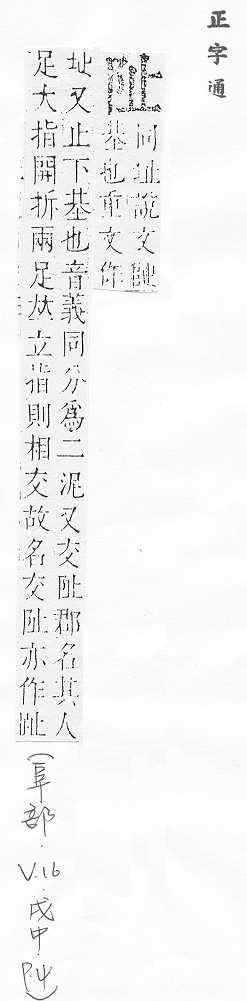 正字通
阯
同址說文阯
基也重文作
址又止下基也音義同分爲二泥又交阯郡名其人
足大指開拆兩足並立指則相交故名交阯亦作趾
(阜部·V.16·戌中·P.4)